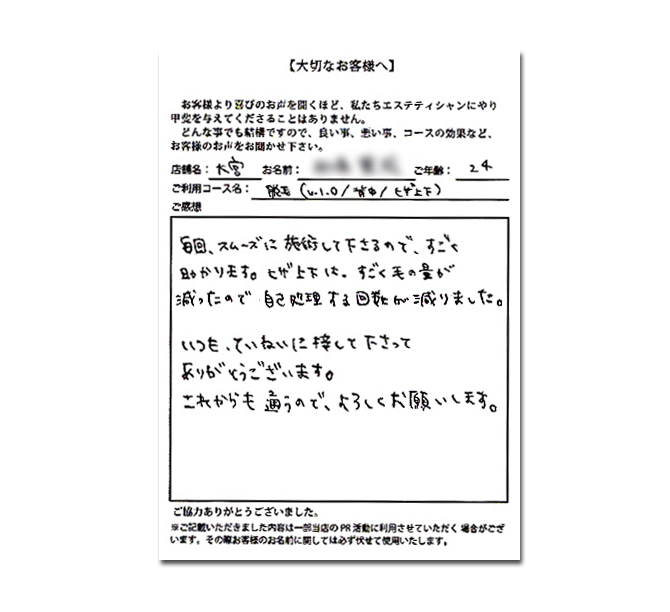 【大切なお客様へ】
お客様より喜びのお声を聞くほど、私たちエステティシャンにやり
甲斐を与えてくださることはありません。
どんな事でも結構ですので、良い事、悪い事、コースの効果など、
お客様のお声をお聞かせ下さい。
店舗名: 大宮 お名前: ご年齢: 24
ご利用コース名: 脱毛 (V.I.O/背中/ヒゲ上下)
ご感想
毎回、スムーズに施術して下さるので、すごく
助かります。ヒゲ上下は、すごく毛の量が
減ったので自己処理する回数が減りました。
いつも、ていねいに接して下さって
ありがとうございます。
これからも通うので、よろしくお願いします。
ご協力ありがとうございました。
※ご記載いただきました内容は一部当店のPR活動に利用させていただく場合がござ
います。その際お客様のお名前に関しては必ず伏せて使用いたします。